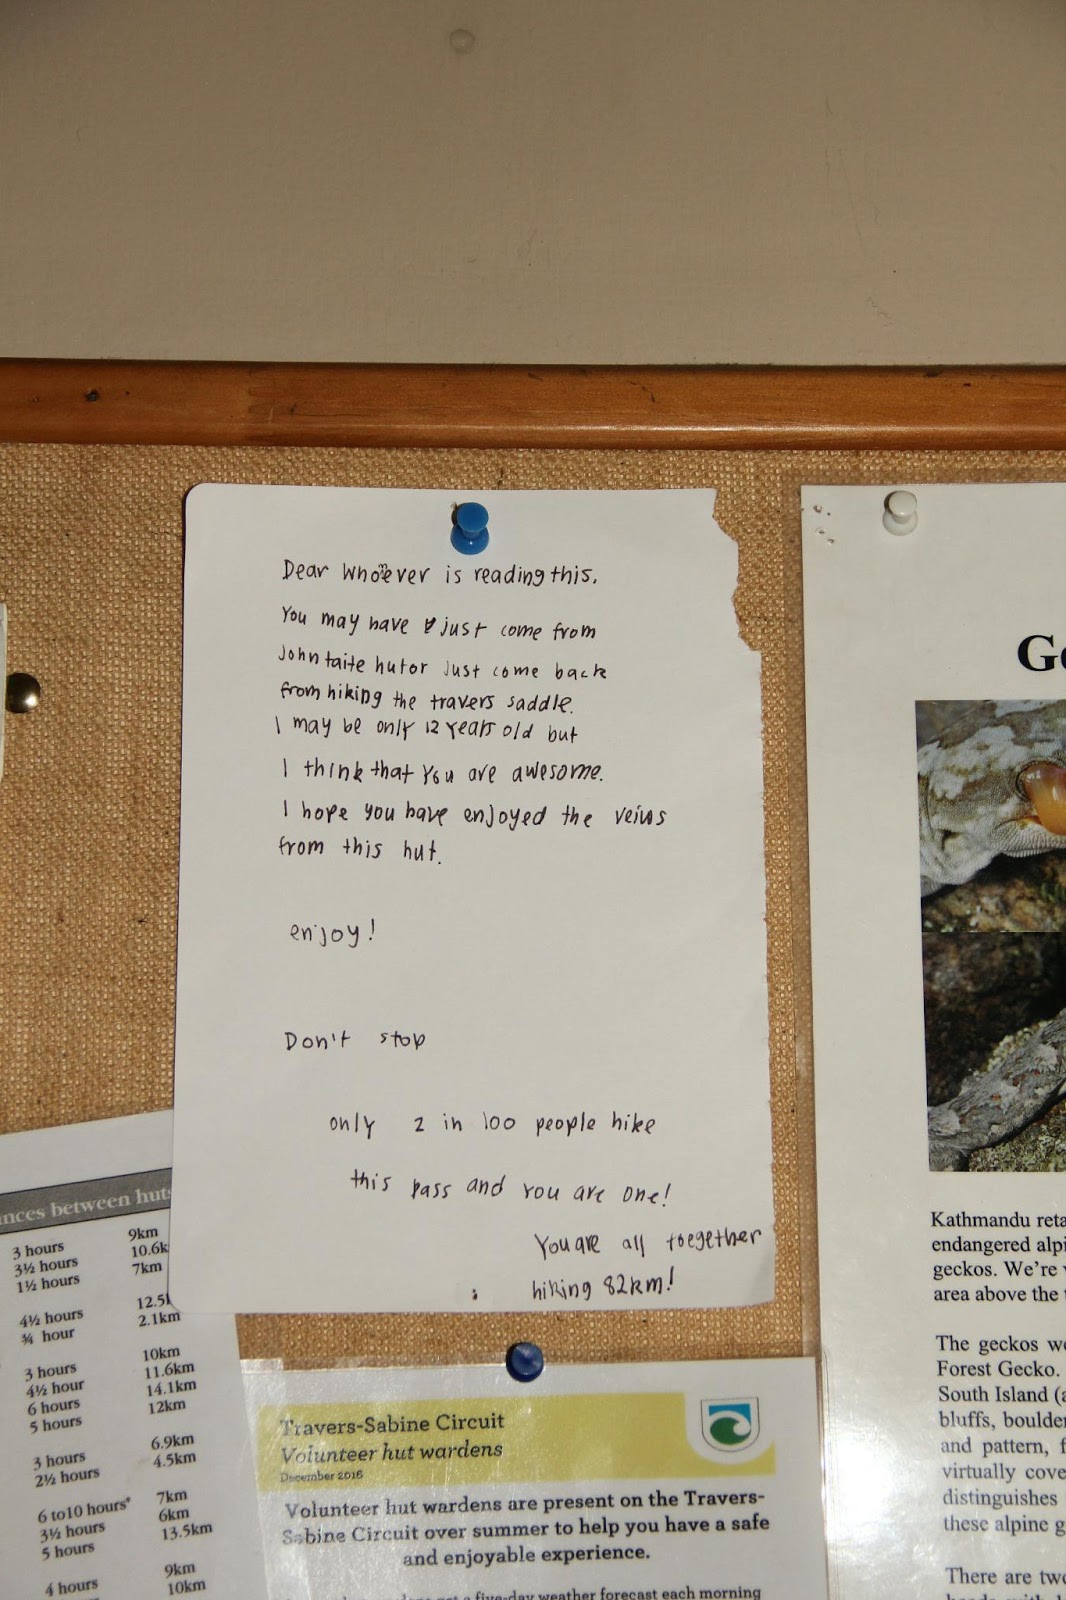 Dear whoever is reading this.
You may have just come from
John taite hut or just come back
from hiking the travers saddle.
I may be only 12 years old but
I think that you are awesome.
I hope you have enjoyed the veiws
from this hut.
enjoy!
Don't stop
only 2 in 100 people hike
this pass and you are one!
You are all toegether
hiking 82km!
nces between huts
3 hours 9km
3½ hours 10.6k
1½ hours 7km
4½ hours 12.5k
¾ hour 2.1km
10km
3 hours 11.6km
4½ hour 14.1km
6 hours 12km
5 hours
6.9km
3 hours 4.5km
2½ hours
7km
6 to10 hours* 6km
3½ hours 13.5km
5 hours
9km
4 hours 10km
Travers-Sabine Circuit
Volunteer hut wardens
December 2016
Volunteer hut wardens are present on the Travers-
Sabine Circuit over summer to help you have a safe
and enjoyable experience.
five-day weather forecast each morning
Ge
Kathmandu reta
endangered alpi
geckos. We're
area above the
The geckos we
Forest Gecko.
South Island (a
bluffs, boulder
and pattern, f
virtually cove
distinguishes
these alpine g
There are two